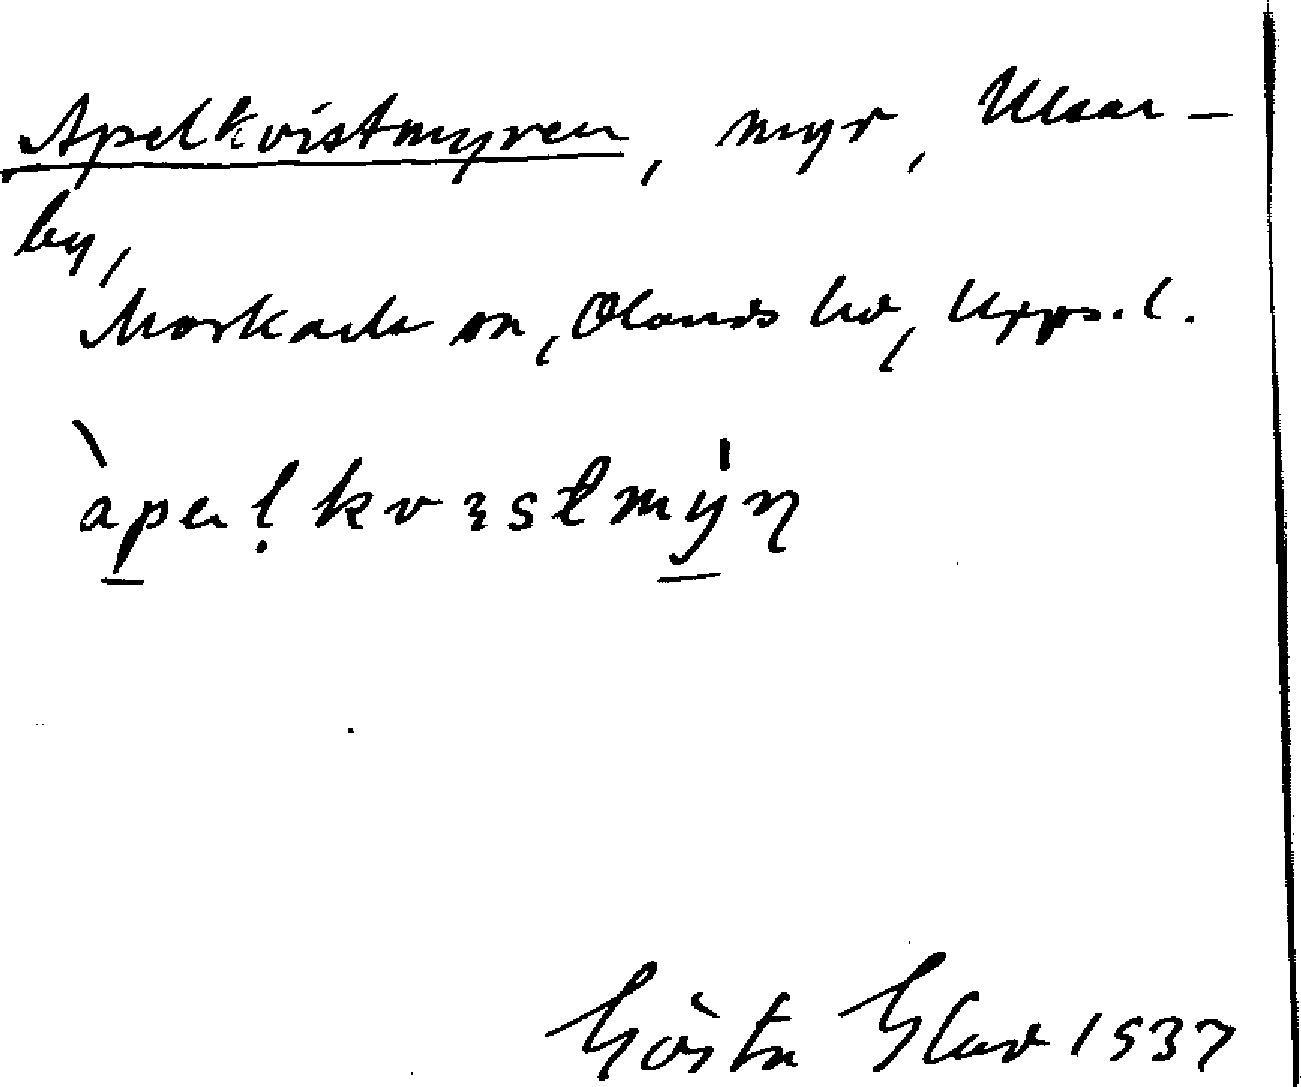 Apelkvistmyren, myr, Ulsar-
by,
Morkarla sn, Olands hd, Upps. l.
àpeļkvɜstmýn
Gösta Glad 1937